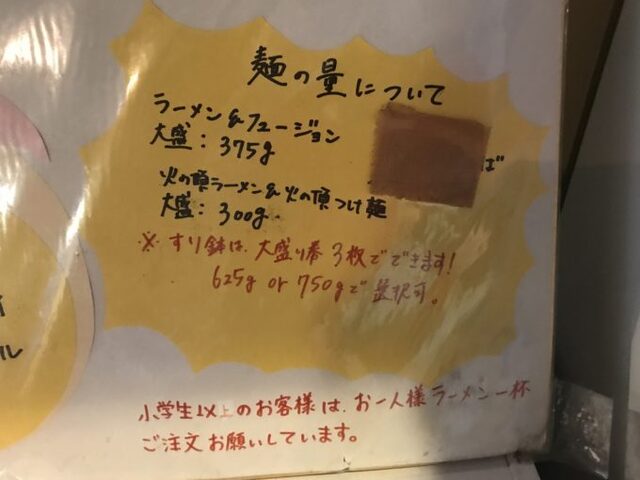 麺の量について
ラーメン&フュージョン
大盛：375g
ば
火の頂ラーメン&火の頂つけ麺
大盛：300g
※すり鉢は、大盛り券3枚でできます!
625g or 750gで選択可。
小学生以上のお客様は、お一人様ラーメン一杯
ご注文お願いしています。
ル